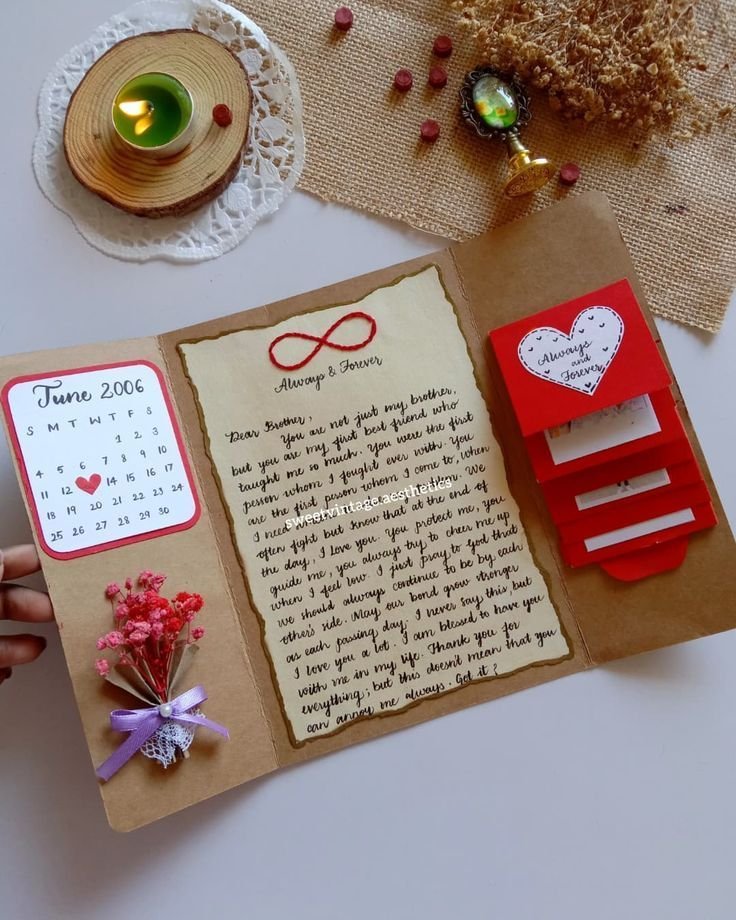 June 2006
S M T W T F S
1 2 3
4 5 6 7 8 9 10
11 12 14 15 16 17
18 19 20 21 22 23 24
25 26 27 28 29 30
Always & Forever
Dear Brother,
You are not just my brother,
but you are my first best friend who
taught me so much. You were the first
person whom I fought ever with. You
are the first person whom I come to, when
I need We
often fight but know that at the end of
the day, I love you. You protect me, you
guide me, you always try to cheer me up
when I feel low. I just pray to God that
we should always continue to be by each
other's side. May our bond grow stronger
as each passing day. I never say this, but
I love you a lot. I am blessed to have you
with me in my life. Thank you for
everything; but this doesn't mean that you
can annoy me always. Got it?
sweetvintage.aesthetics
Always
and
Forever